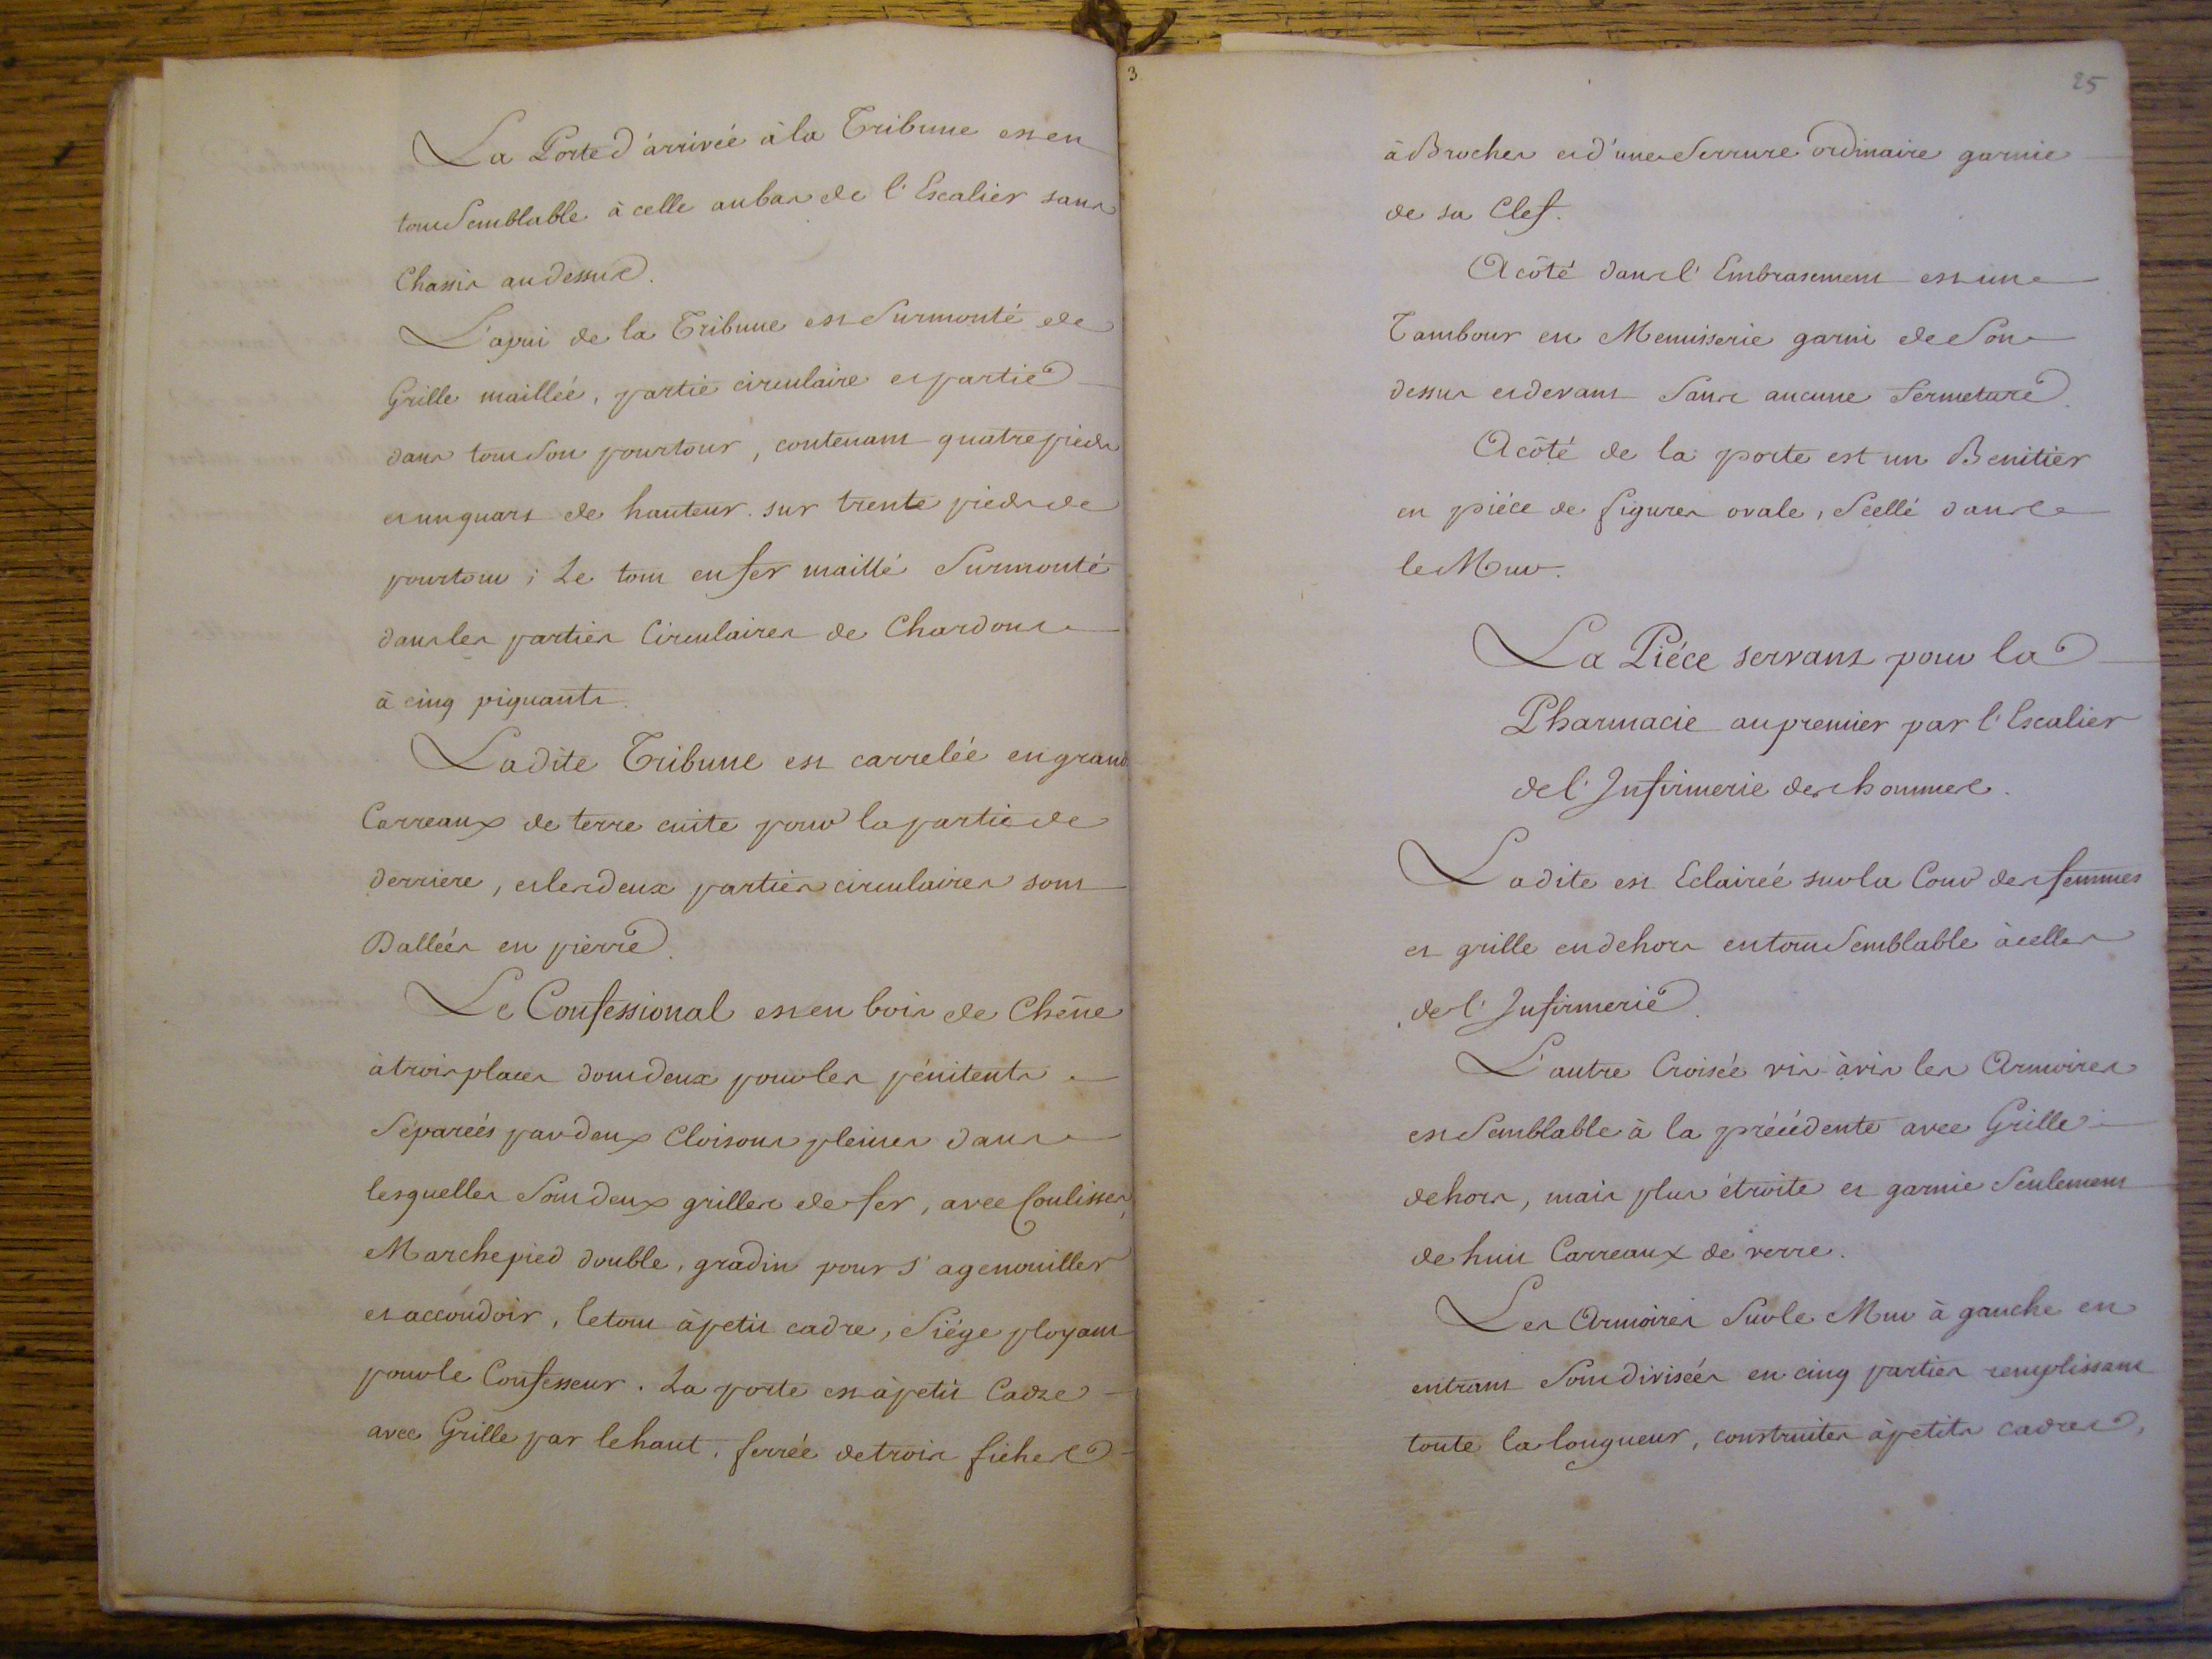 La Porte d'arrivée à la Tribune est en
tout Semblable à celle au bas de l'Escalier sans
Chassis au dessus.
L'apui de la Tribune est Surmonté de
Grille maillée, partie circulaire et partie
dans tout Son pourtour, contenant quatre pieds
et un quart de hauteur sur trente pieds de
pourtour; Le tout en fer maillé Surmonté
dans les parties Circulaires de Chardons
à cinq piquants.
Ladite Tribune est carrelée en grand
Carreaux de terre cuite pour la partie de
derriere, et les deux parties circulaires sont
Dallées en pierre.
Le Confessional est en bois de Chêne
à trois places dont deux pour les pénitents
Séparées par deux Cloisons pleines dans
lesquelles Sont deux grilles de fer, avec Coulisses,
Marchepied double, gradin pour S'agenouiller
et accoudoir, le tout à petit cadre, Siége ployant
pour le Confesseur. La porte est à petit Cadre
avec Grille par le haut, ferrée de trois fiches
3
25
à Broches et d'une Serrure ordinaire garnie
de sa Clef.
A côté dans l'Embrasement est une
Tambour en Menuiserie garni de Son
dessus et devant Sans aucune fermeture.
A côté de la porte est un Benitier
en piéce de figures ovale, Scellé dans
le Mur.
La Piéce servant pour la
Pharmacie au premier par l'Escalier
de l'Infirmerie des hommes.
Ladite est Eclairée sur la Cour des femmes
et grille en dehors en tout Semblable à celles
de l'Infirmerie.
L'autre Croisée vis-à vis les Armoires
est Semblable à la précédente avec Grille
dehors, mais plus étroite et garnie Seulement
de huit Carreaux de verre.
Les Armoires Sur le Mur à gauche en
entrant Sont divisées en cinq parties remplissant
toute la longueur, construites à petits cadres,